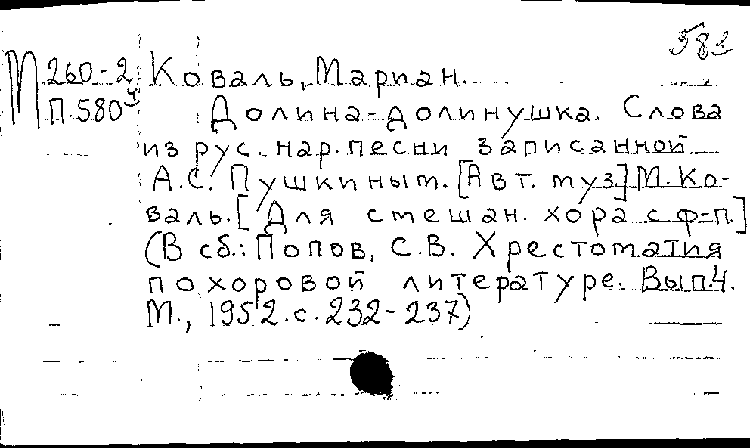 581
М 260-2 Коваль, Мариан.
П 580ч Долина-долинушка. Слова
из рус. нар. песни записанной
А.С. Пушкиным. [Авт. муз.] М. Ко-
валь. [Для смешан. хора с ф-п.]
(В сб.: Попов, С.В. Хрестоматия
по хоровой литературе. Вып 4.
М., 1952. с. 232-237)